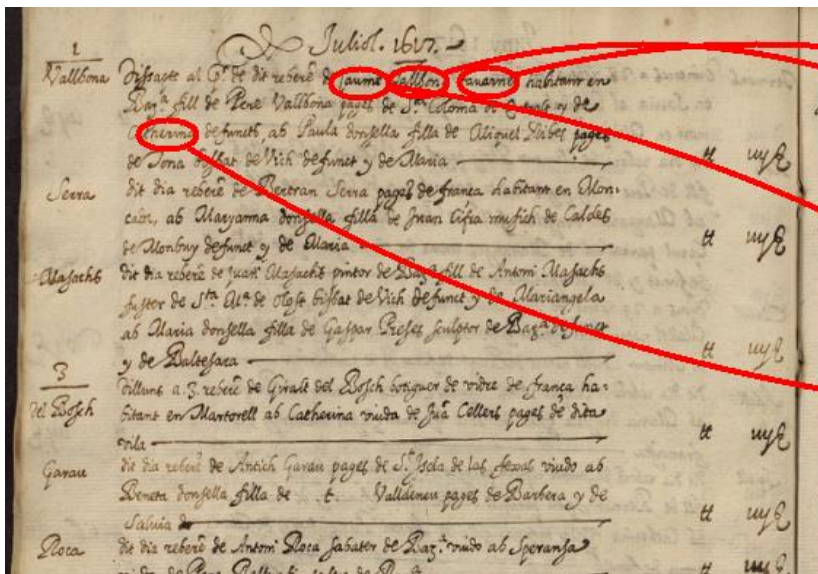 Juliol. 1617.
1
Vallbona Dissapte al p.r de dit reberé de Jaume Vallbona tavarner habitant en
Bar.a fill de Pere Vallbona pages de S.ta Coloma de y de
Catherina defuncts ab Paula donsella filla de Miquel Ribes pages
de Tona bisbat de Vich defunct y de Maria
Serra dit dia reberé de Bertran Serra pages de frança habitant en Mon-
ab Maryanna donsella filla de Juan Cifra musich de Caldes
de Monbuy defunct y de Maria
Masachs dit dia reberé de Juan Masachs pintor de Bar.a fill de Antoni Masachs
fuster de S.ta M.a de olost bisbat de Vich defunct y de Mariangela
ab Maria donsella filla de Gaspar sculptor de Bar.a defunct
y de Baltesara
3
Dilluns a 3. reberé de Giralt del Bosch botiguer de vidre de frança ha-
del Bosch bitant en Martorell ab Catherina viuda de Juā Cellers pages de dita
vila
Garau dit dia reberé de Antich Garau pages de S.t de las viudo ab
Beneta donsella filla de t. pages de Barbera y de
Salvia
Roca dit dia reberé de Antoni Roca sabater de Bar.a viudo ab Speransa